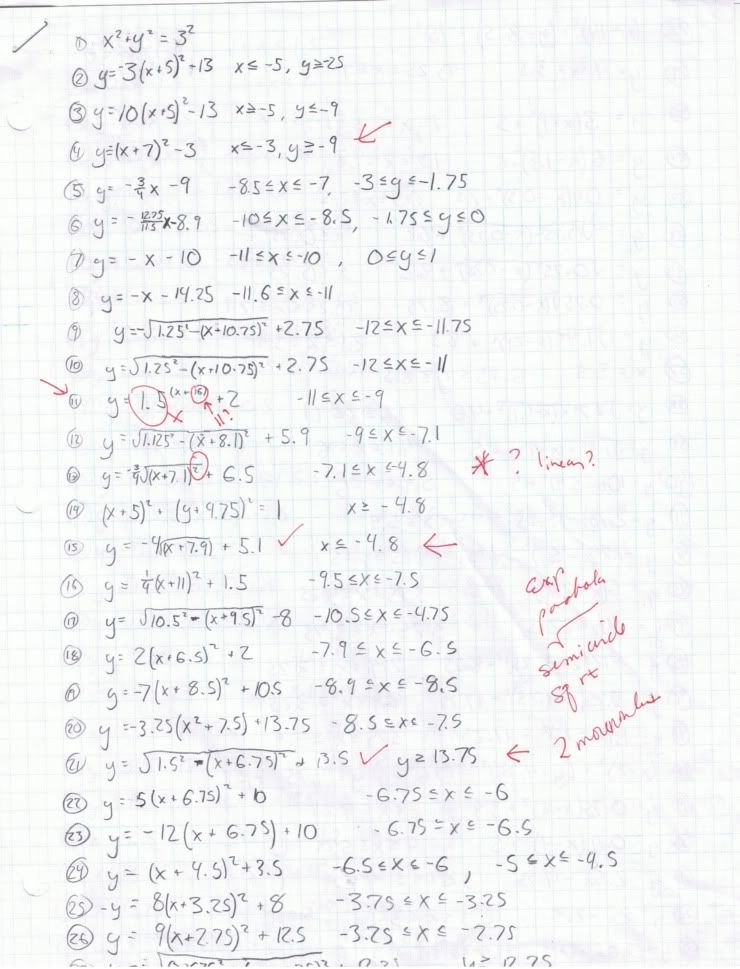 ① x²+y² = 3²
② y=-3(x+5)²-13 x≤-5, y≥-25
③ y=10(x+5)²-13 x≥-5, y≤-9
④ y=(x+7)²-3 x≤-3, y≥-9
⑤ y= -3/4x -9 -8.5≤x≤-7, -3≤y≤-1.75
⑥ y= -x-8.9 -10≤x≤-8.5, -1.75≤y≤0
⑦ y= -x-10 -11≤x≤-10, 0≤y≤1
⑧ y=-x-14.25 -11.6≤x≤-11
⑨ y=-√(1.25²-(x+10.75)²) +2.75 -12≤x≤-11.75
⑩ y=√(1.25²-(x+10.75)²) +2.75 -12≤x≤-11
⑪ y= 1.5^(x+16) +2 -11≤x≤-9
x 11?
⑫ y=√(1.125²-(x+8.1)²) + 5.9 -9≤x≤-7.1
⑬ y=-3/4√(x+7.1)² + 6.5 -7.1≤x≤-4.8 * ? linear?
⑭ (x+5)² + (y+4.75)² = 1 x≥ -4.8
⑮ y= -4√(x+7.9) + 5.1 ✓ x≤-4.8 ←
⑯ y= 1/4(x+11)² + 1.5 -9.5≤x≤-7.5
exp
parabola
⑰ y= √(10.5²-(x+9.5)²) -8 -10.5≤x≤-4.75
√
⑱ y= 2(x+6.5)²+2 -7.9≤x≤-6.5
semicircle
⑲ y=-7(x+8.5)² +10.5 -8.9≤x≤-8.5
sq rt
⑳ y=-3.25(x²+7.5)+13.75 -8.5≤x≤-7.5
㉑ y= √(1.5²-(x+6.75)²) + 13.5 ✓ y≥13.75 ← 2
㉒ y=-5(x+6.75)²+10 -6.75≤x≤-6
㉓ y= -12(x+6.75)+10 -6.75≤x≤-6.5
㉔ y= (x+4.5)²+3.5 -6.5≤x≤-6, -5≤x≤-4.5
㉕ -y= 8(x+3.25)²+8 -3.75≤x≤-3.25
㉖ y= 9(x+2.75)²+12.5 -3.25≤x≤-2.75